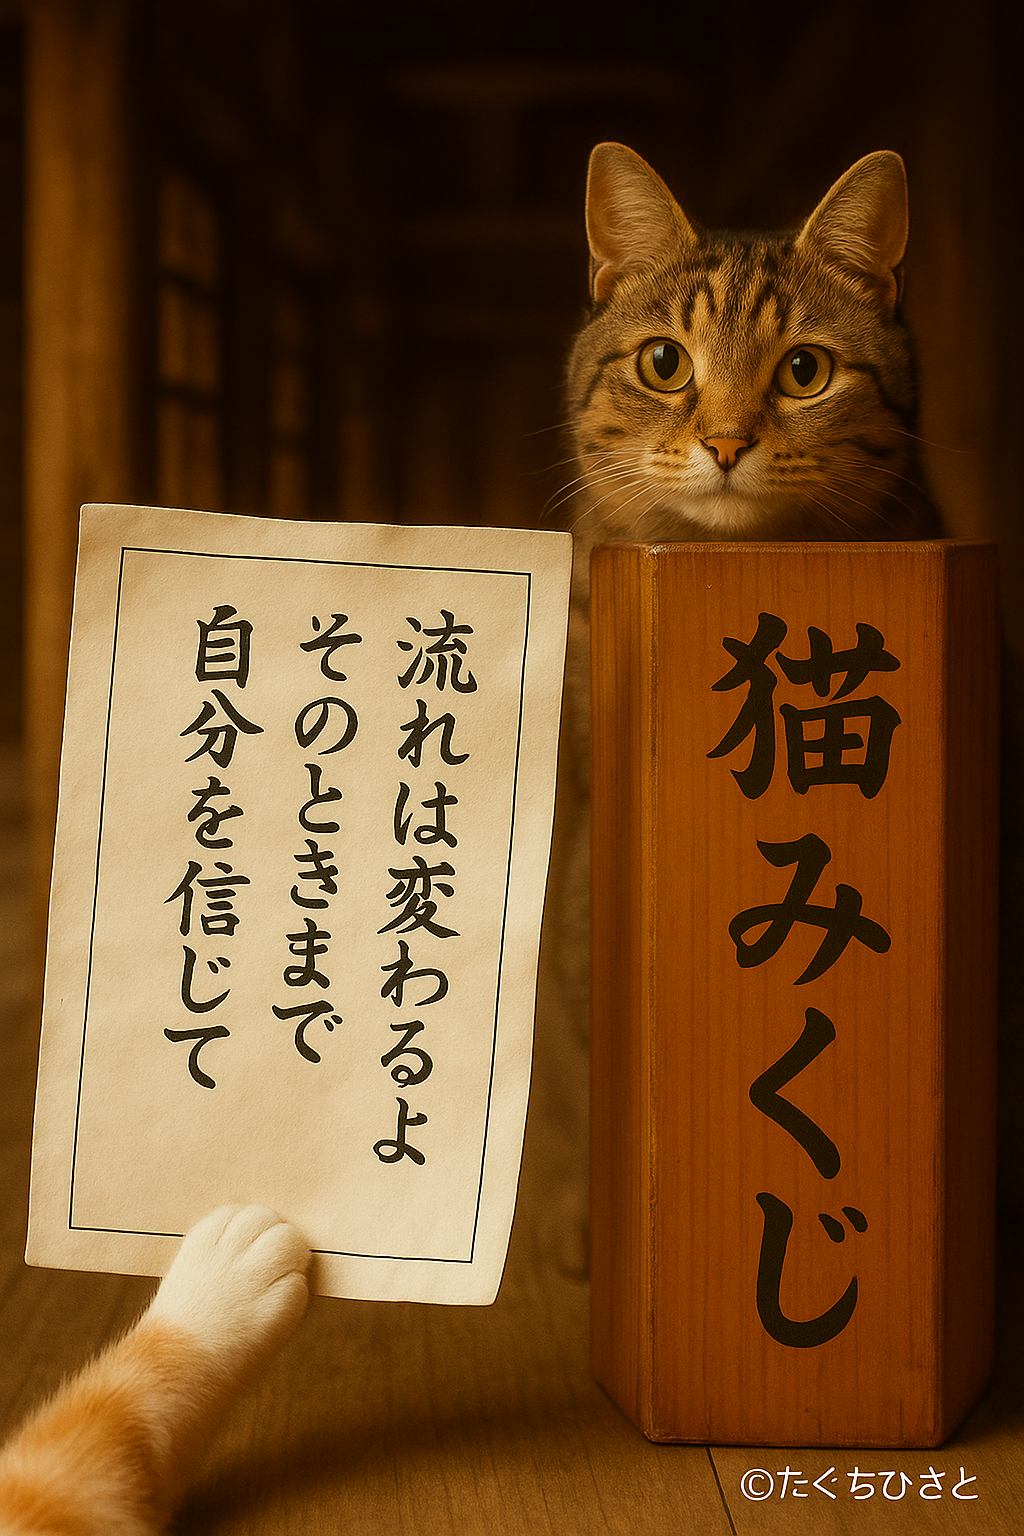 流れは変わるよ
そのときまで
自分を信じて
猫みくじ
©たぐちひさと